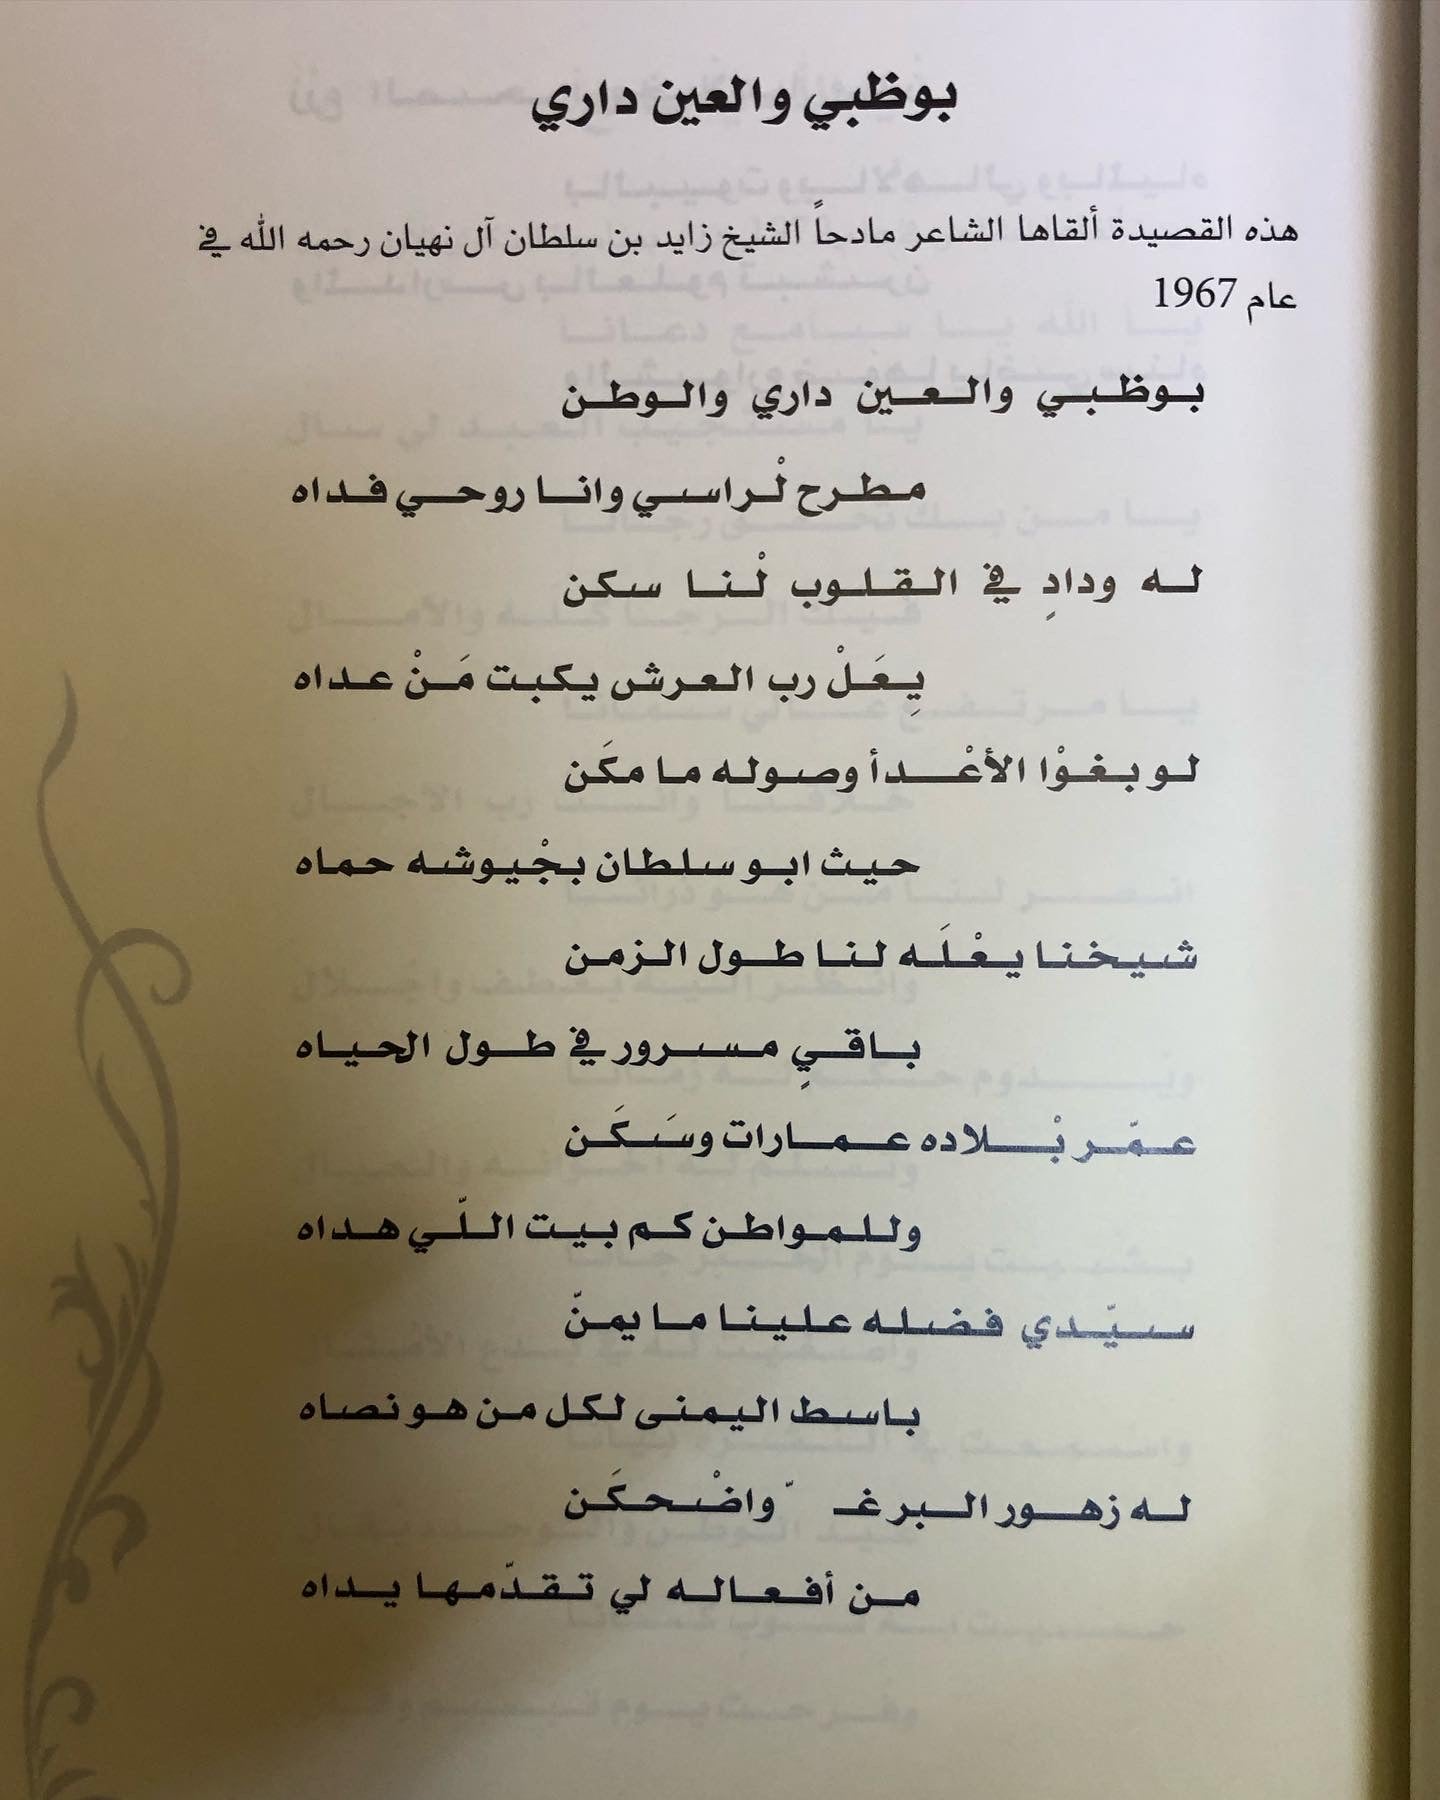 بوظبي والعين داري
هذه القصيدة ألقاها الشاعر مادحاً الشيخ زايد بن سلطان آل نهيان رحمه الله في
عام 1967
بوظبي والعين داري والوطن
مطرح لْراسي وانا روحي فداه
له ودادِ في القلوب لْنا سكن
يِعَلْ رب العرش يكبت مَنْ عداه
لو بغوْا الأعْدأ وصوله ما مكَن
حيث ابو سلطان بجْيوشه حماه
شيخنا يعْلَه لنا طول الزمن
باقيِ مسرور في طول الحياه
عمّر بْلاده عمارات وسَكَن
وللمواطن كم بيت اللّي هداه
سيّدي فضله علينا ما يمنّ
باسط اليمنى لكل من هو نصاه
له زهور البر غـ ّ واضْحكَن
من أفعاله لي تقدّمها يداه